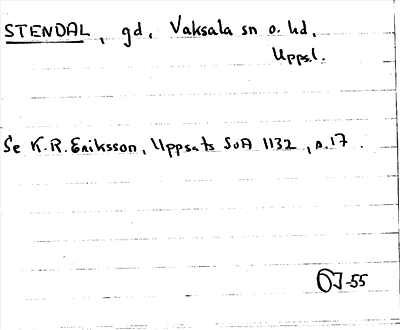 STENDAL, gd, Vaksala sn o. hd,
Upps.l.
Se K.R. Eriksson, Uppsats SOA 1132, s.17.
OJ-55